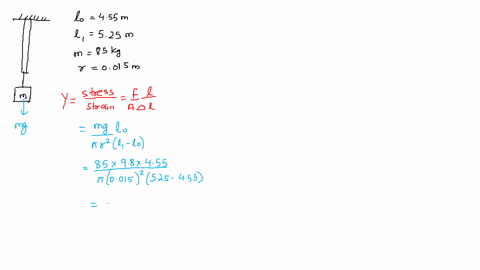 l₀ = 4.55 m
l₁ = 5.25 m
m = 85 kg
r = 0.015 m
m
mg
Y = stress/strain = F/A l/△l
= mg l₀ / πr² (l₁-l₀)
= 85 × 9.8 × 4.55 / π(0.015)² (5.25 - 4.55)
=